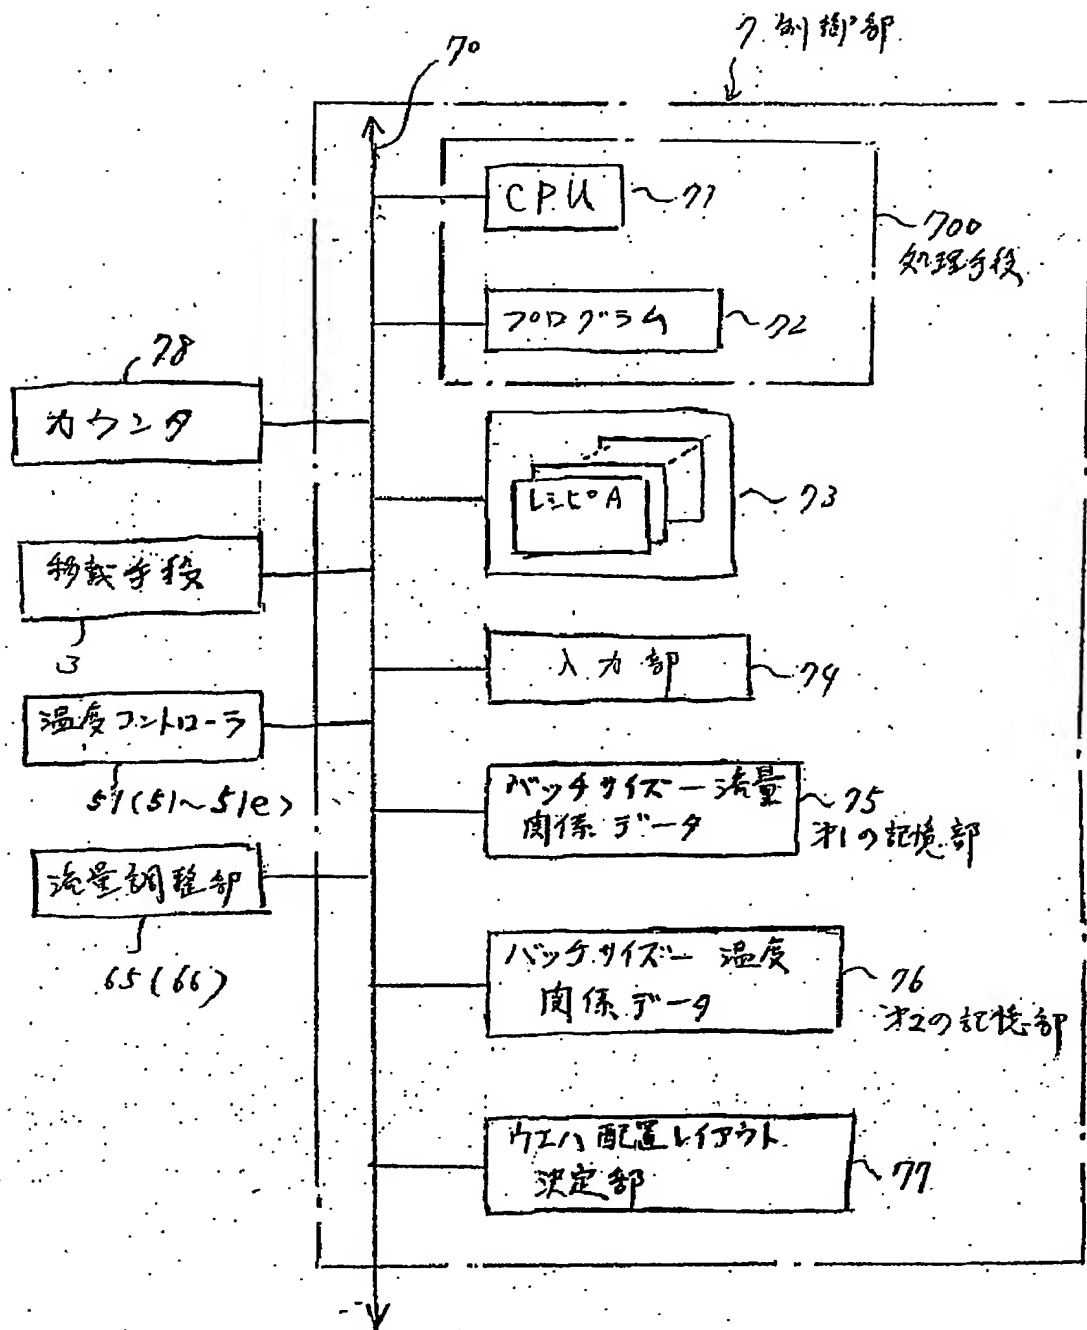 70
7 制御部
CPU
71
700
処理手段
プログラム
72
78
カウンタ
レシピA
73
移載手段
3
入力部
74
温度コントローラ
51(51~51e)
バッチサイズー流量
関係データ
75
オ1の記憶部
流量調整部
65(66)
バッチサイズー温度
関係データ
76
オ2の記憶部
ウエハ配置レイアウト
決定部
77